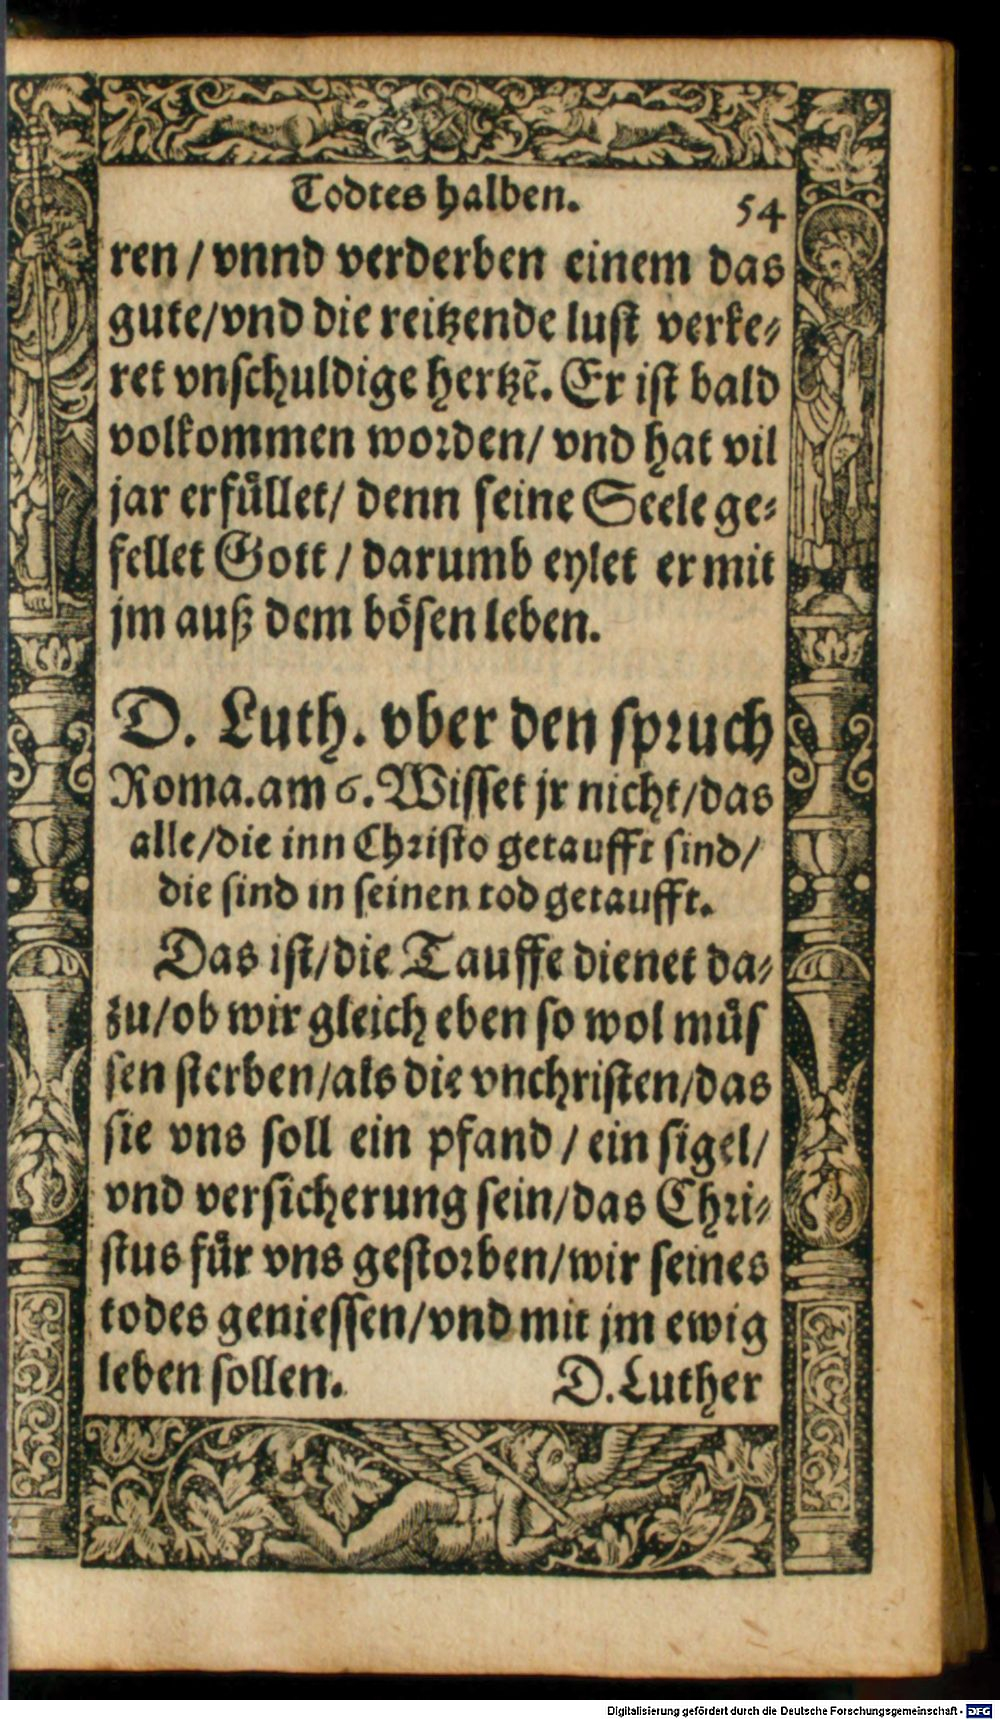 Todtes halben. 54
ren / vnnd verderben einem das
gute/vnd die reitzende lust verke-
ret vnschuldige hertzẽ. Er ist bald
volkommen worden/ vnd hat vil
jar erfüllet/ denn seine Seele ge-
fellet Gott / darumb eylet er mit
jm auß dem bösen leben.
D. Luth. vber den spruch
Roma. am 6. Wisset jr nicht/das
alle/die inn Christo getaufft sind/
die sind in seinen tod getaufft.
Das ist/die Tauffe dienet da-
zu/ob wir gleich eben so wol müs
sen sterben/als die vnchristen/das
sie vns soll ein pfand / ein sigel/
vnd versicherung sein/das Chri-
stus für vns gestorben/wir seines
todes geniessen/vnd mit jm ewig
leben sollen. D. Luther
Digitalisierung gefördert durch die Deutsche Forschungsgemeinschaft - DFG